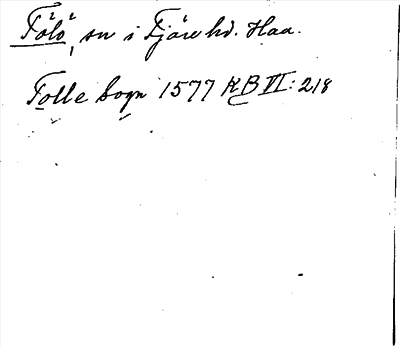 Fölö, sn i Fjäre hd. Haa.
Folle sogn 1577 KB VI: 218